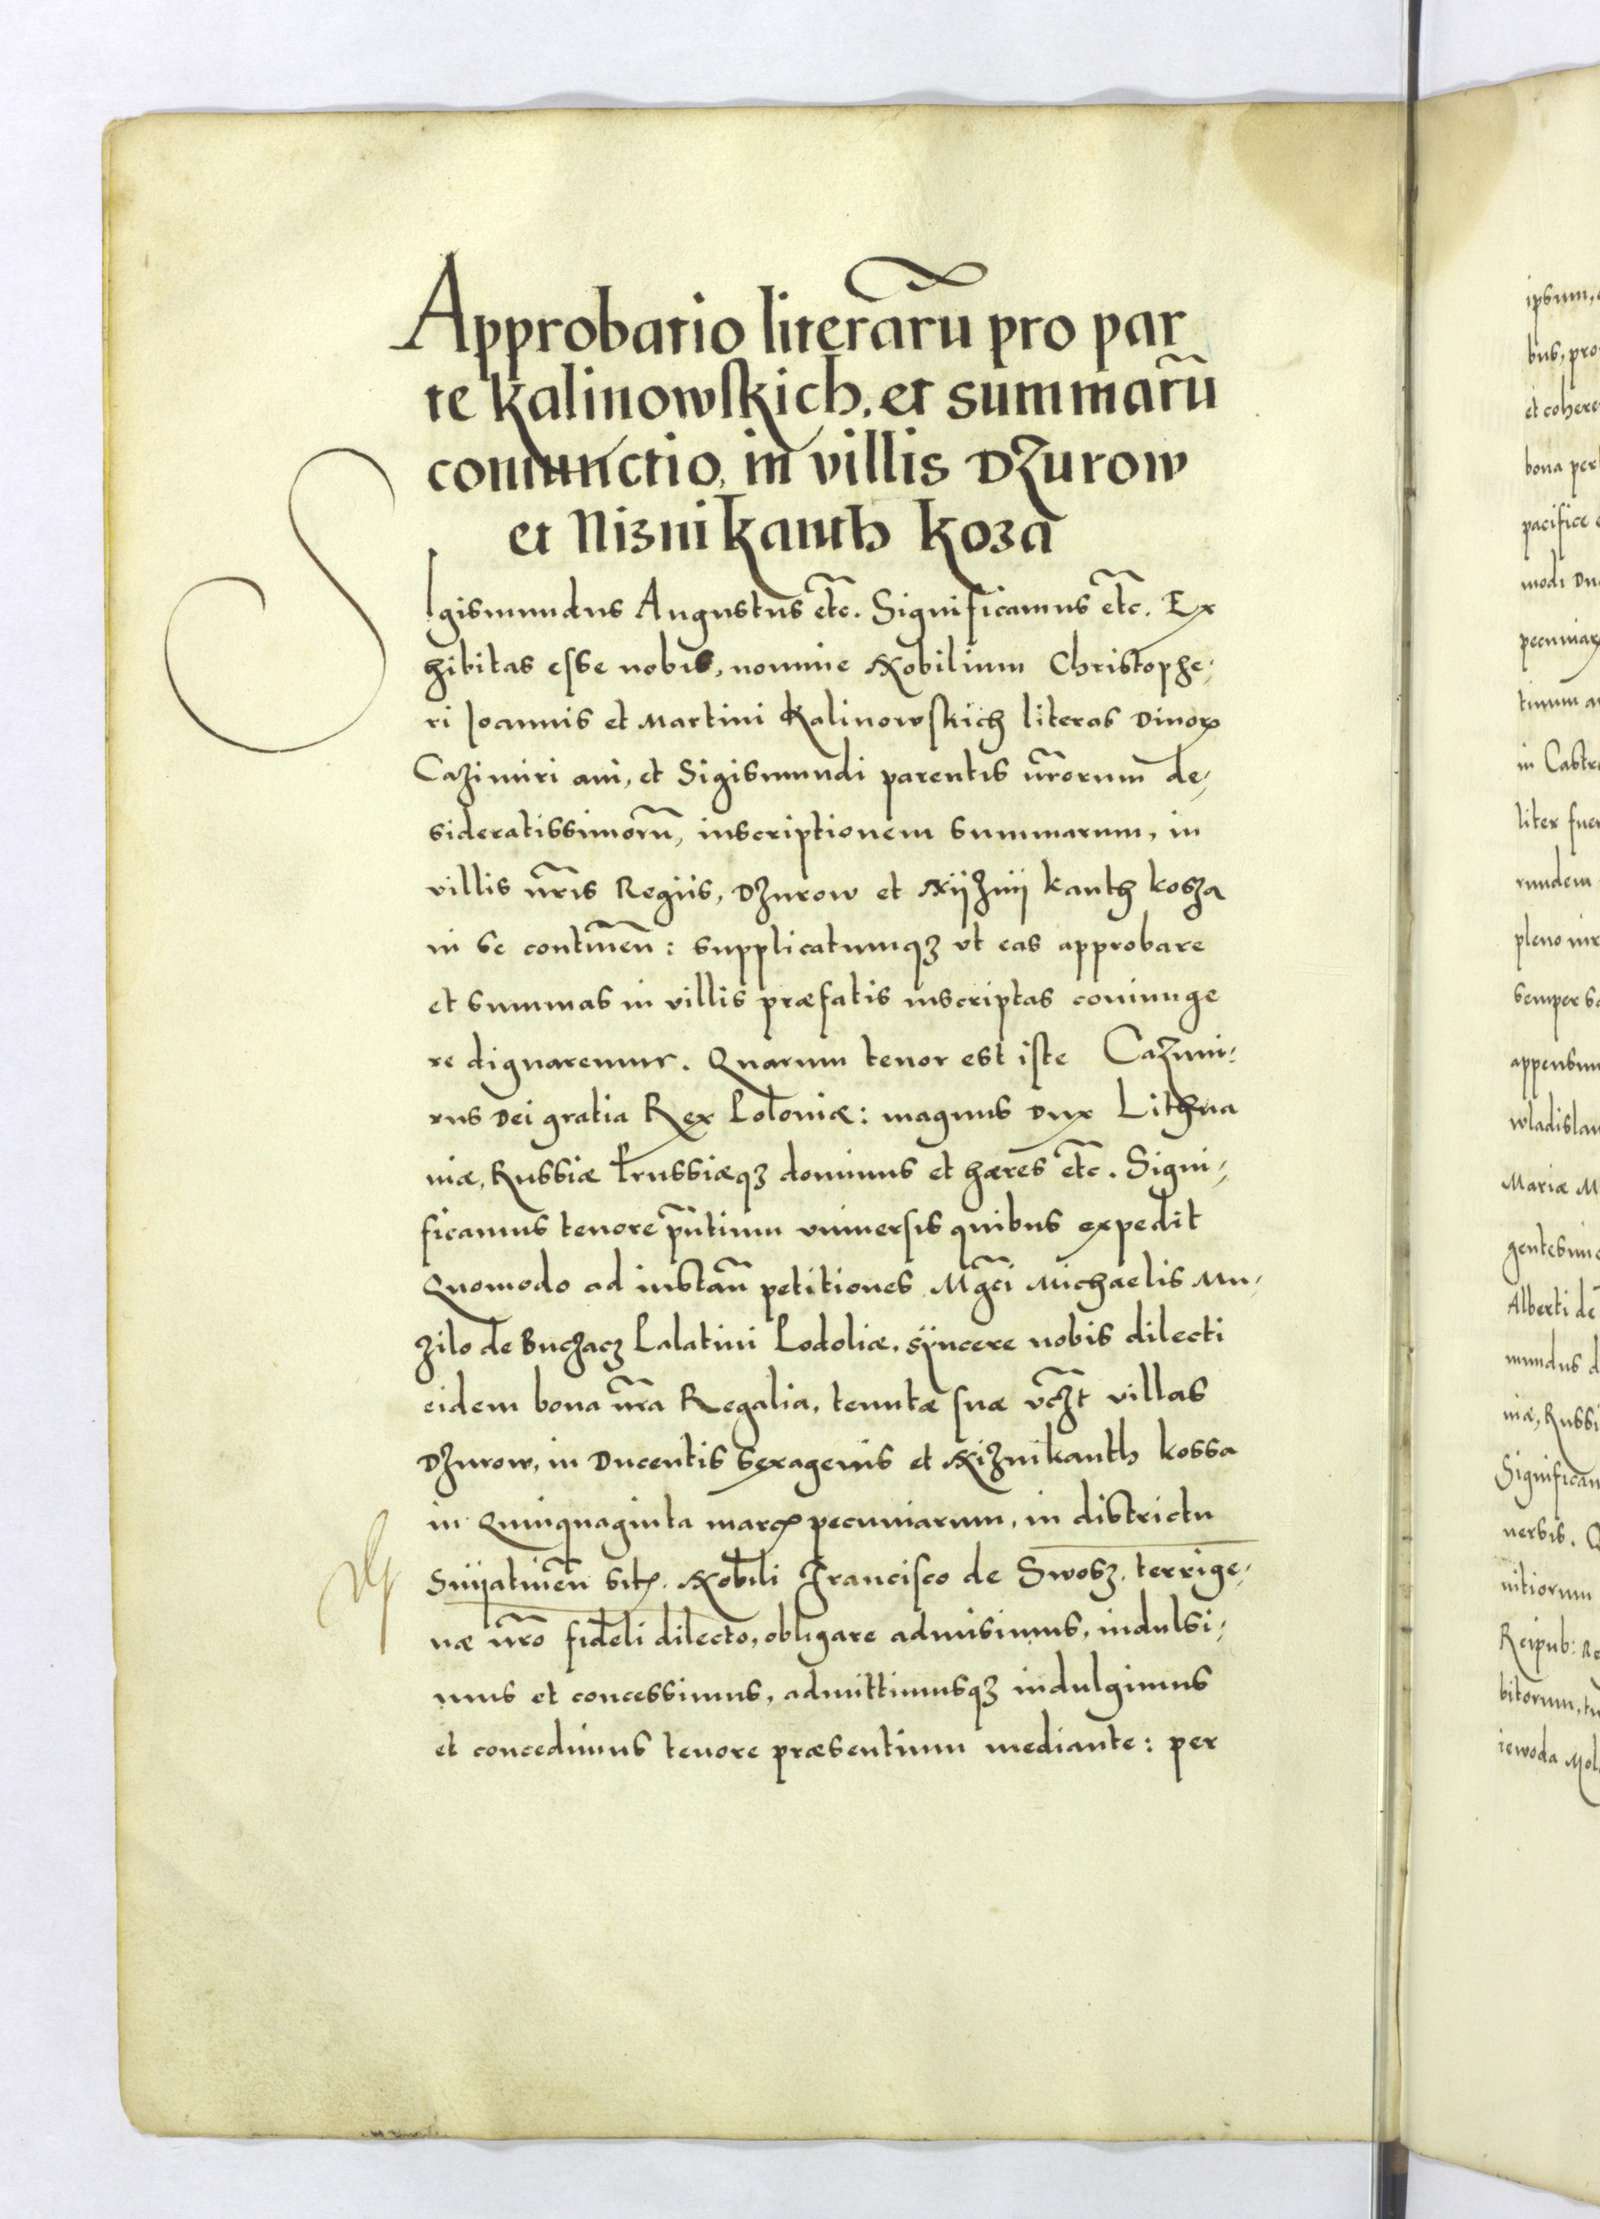 Approbatio literarũ pro par
te Kalinowskich, et summarũ
coniunctio, in villis Dzurow
et Nizni kanth koza
Sigismundus Augustus etc̃. Significamus etc̃. Ex
hibitas esse nobis, nomine Nobilium Christophe-
ri Joannis et Martini Kalinowskich literas Diuorꝝ
Cazimiri aui, et Sigismundi parentis nr̃orum de-
sideratissimorũ, inscriptionem summarum, in
villis nr̃is Regiis, Dzurow et Nijznij kanth kosza
in se continen̄: supplicatumqꝫ vt eas approbare
et summas in villis præfatis inscriptas coniunge
re dignaremur. Quarum tenor est iste Cazimi-
rus Dei gratia Rex Poloniæ: magnus Dux Lithua
niæ, Russiæ Prussiæqꝫ dominus et hæres etc̃. Signi-
ficamus tenore pñtium vniuersis quibus expedit
Quomodo ad instañ petitiones Mgc̃i Michaelis Mu-
zilo de Buczacz Palatini Podoliæ, sÿncere nobis dilecti
eidem bona nr̃a Regalia, tenutæ suæ vcz̃t villas
Dzurow, in Ducentis sexagenis et Niznikanth kossa
in Quinquaginta marcꝭ pecuniarum, in districtu
Snijatineñ sitꝭ. Nobili Francisco de Swosz. terrige-
næ nr̃o fideli dilecto, obligare admisimus, indulsi-
mus et concessimus, admittimusqꝫ indulgimus
et concedimus tenore præsentium mediante: per
ipsum,
bus, pro
et cohere
bona per
pacifice
modi Du
pecuniarꝝ
in Castr
liter fue
rundem
semper s
appensum
wladislau
Mariæ M
gentesimo
Alberti de
mundus d
niæ, Russi
Significam
uersis. Q
nitiorum
Reipub: Re
bitorum, tu
iewoda Mol